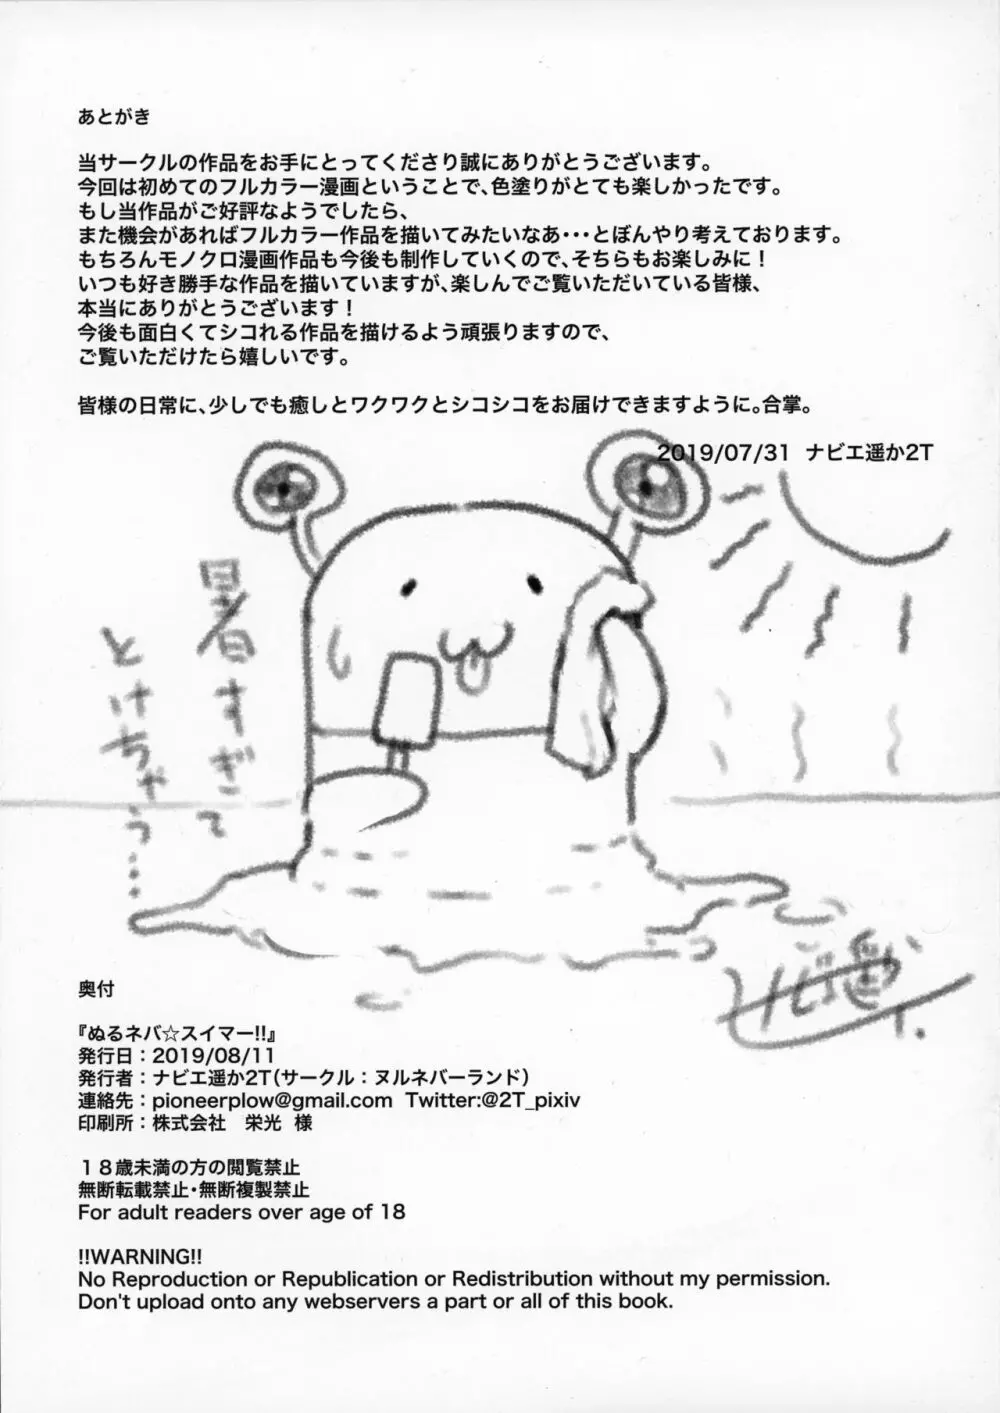 あとがき
当サークルの作品をお手にとってくださり誠にありがとうございます。
今回は初めてのフルカラー漫画ということで、色塗りがとても楽しかったです。
もし当作品がご好評なようでしたら、
また機会があればフルカラー作品を描いてみたいなあ・・・とぼんやり考えております。
もちろんモノクロ漫画作品も今後も制作していくので、そちらもお楽しみに！
いつも好き勝手な作品を描いていますが、楽しんでご覧いただいている皆様、
本当にありがとうございます！
今後も面白くてシコれる作品を描けるよう頑張りますので、
ご覧いただけたら嬉しいです。
皆様の日常に、少しでも癒しとワクワクとシコシコをお届けできますように。合掌。
2019/07/31 ナビエ遥か2T
暑すぎて
とけちゃう…
奥付
『ぬるネバ☆スイマー!!』
発行日：2019/08/11
発行者：ナビエ遥か2T（サークル：ヌルネバーランド）
連絡先：pioneerplow@gmail.com Twitter:@2T_pixiv
印刷所：株式会社 栄光 様
１８歳未満の方の閲覧禁止
無断転載禁止・無断複製禁止
For adult readers over age of 18
!!WARNING!!
No Reproduction or Republication or Redistribution without my permission.
Don't upload onto any webservers a part or all of this book.